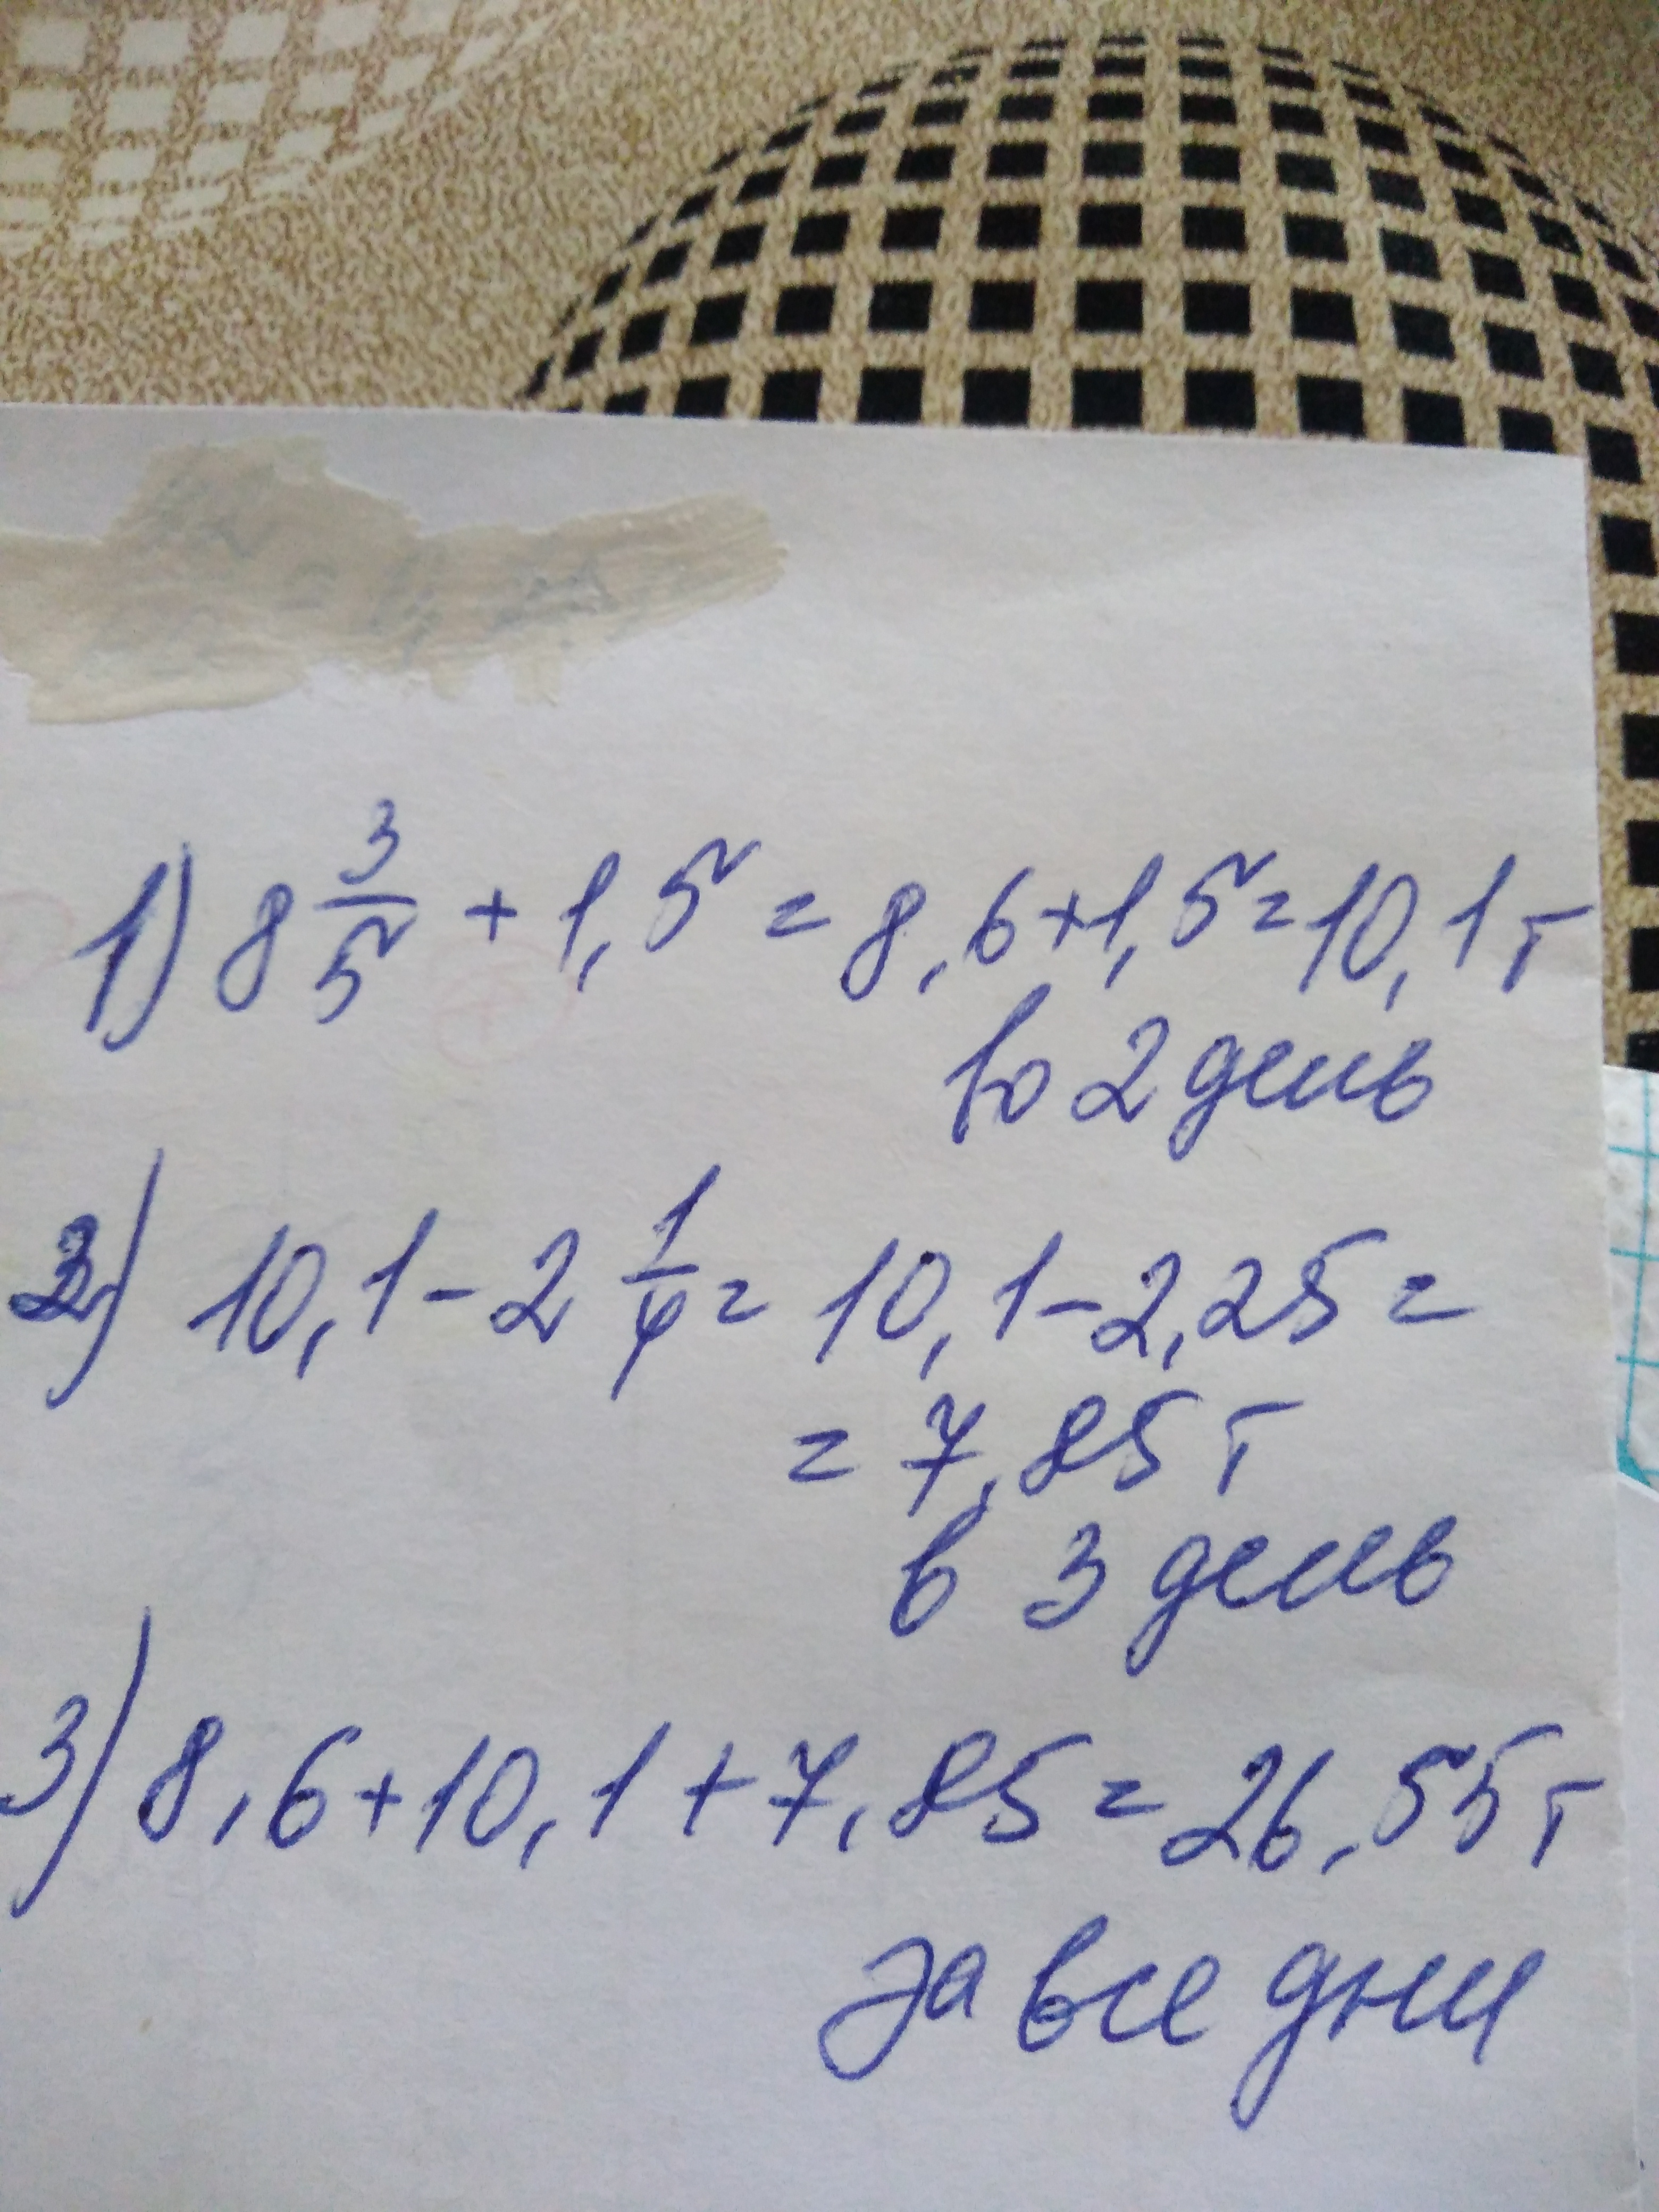 1) 8 3/5 + 1,5 = 8,6+1,5=10,1т
во 2 день
2) 10,1-2 1/4 = 10,1-2,25=
= 7,85 т
в 3 день
3) 8,6+10,1+7,85=26,55т
за все дни